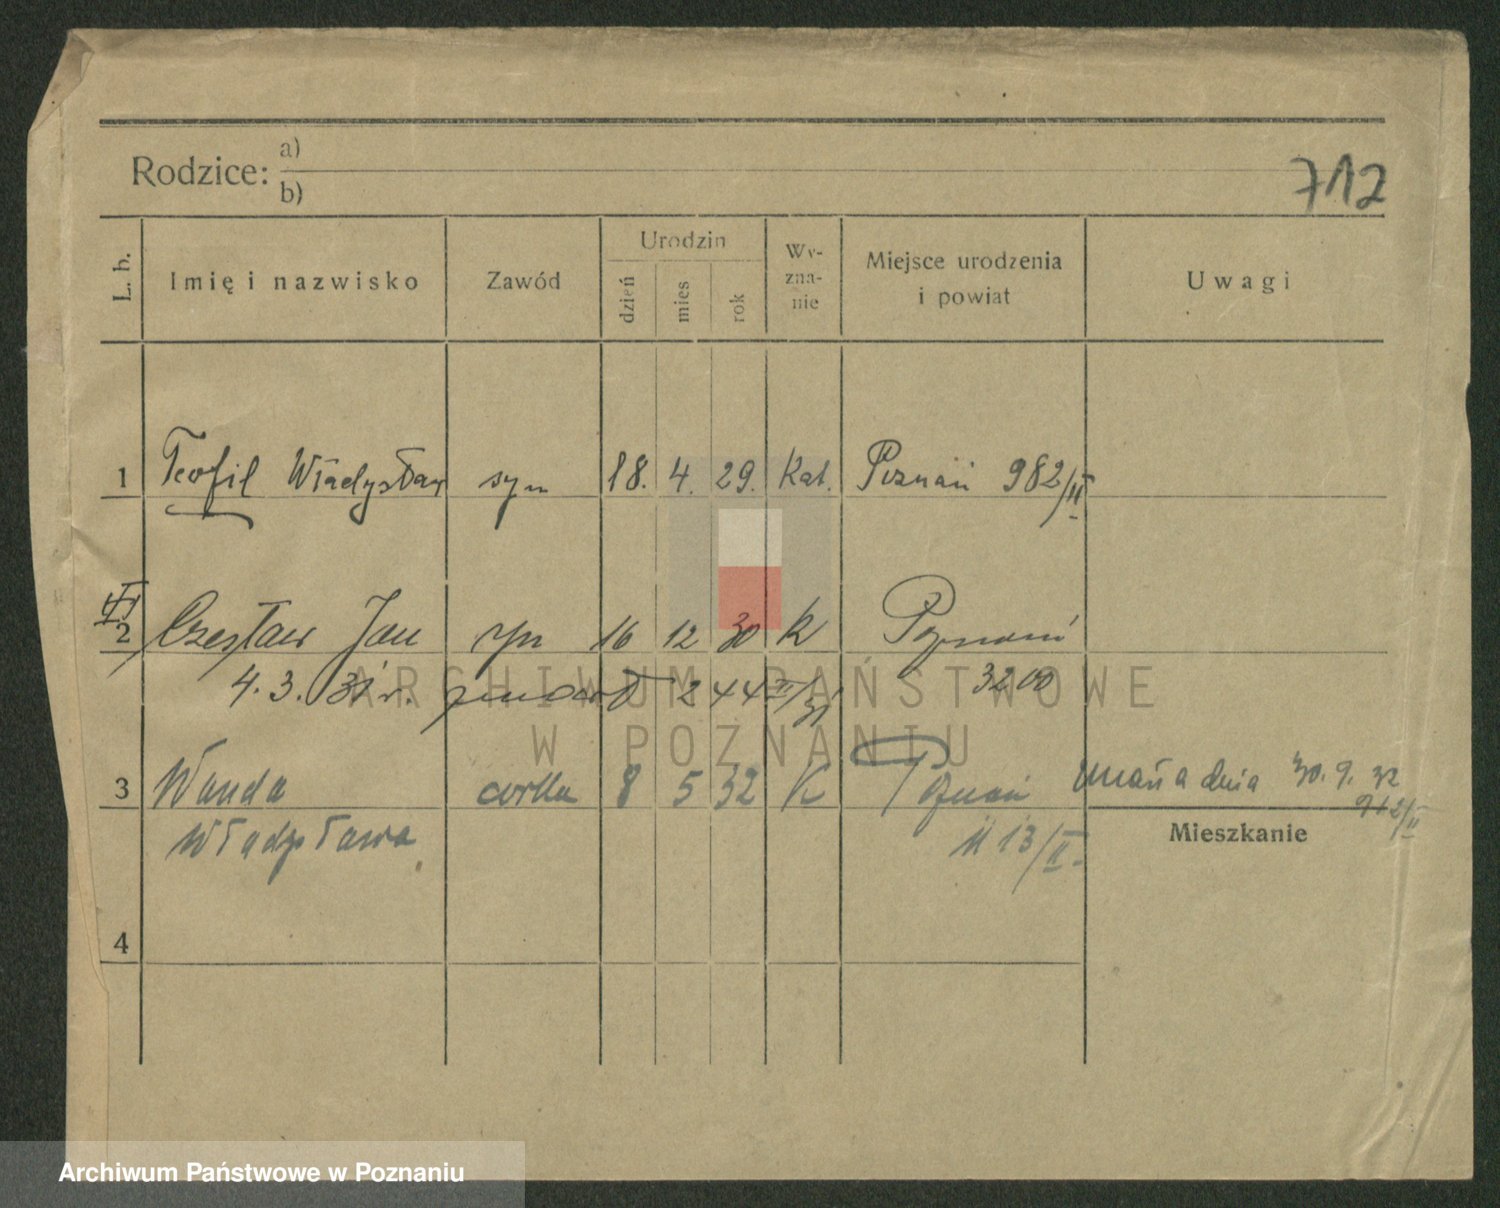 Rodzice: a)
b)
712
L. b.
Imię i nazwisko
Zawód
Urodzin
dzień
mies
rok
Wy-
zna-
nie
Miejsce urodzenia
i powiat
Uwagi
1 Teofil Władysław syn 18. 4. 29. Kat. Poznań 982/II
2 Czesław Jan syn 16 12 30 K Poznań
4. 3. 31 r. 3200
ARCHIWUM PAŃSTWOWE
W POZNANIU
3 Wanda córka 8 5 32 K Poznań zmarła dnia 30. 9. 32
912/II
Władysława 1113/II
Mieszkanie
4
Archiwum Państwowe w Poznaniu